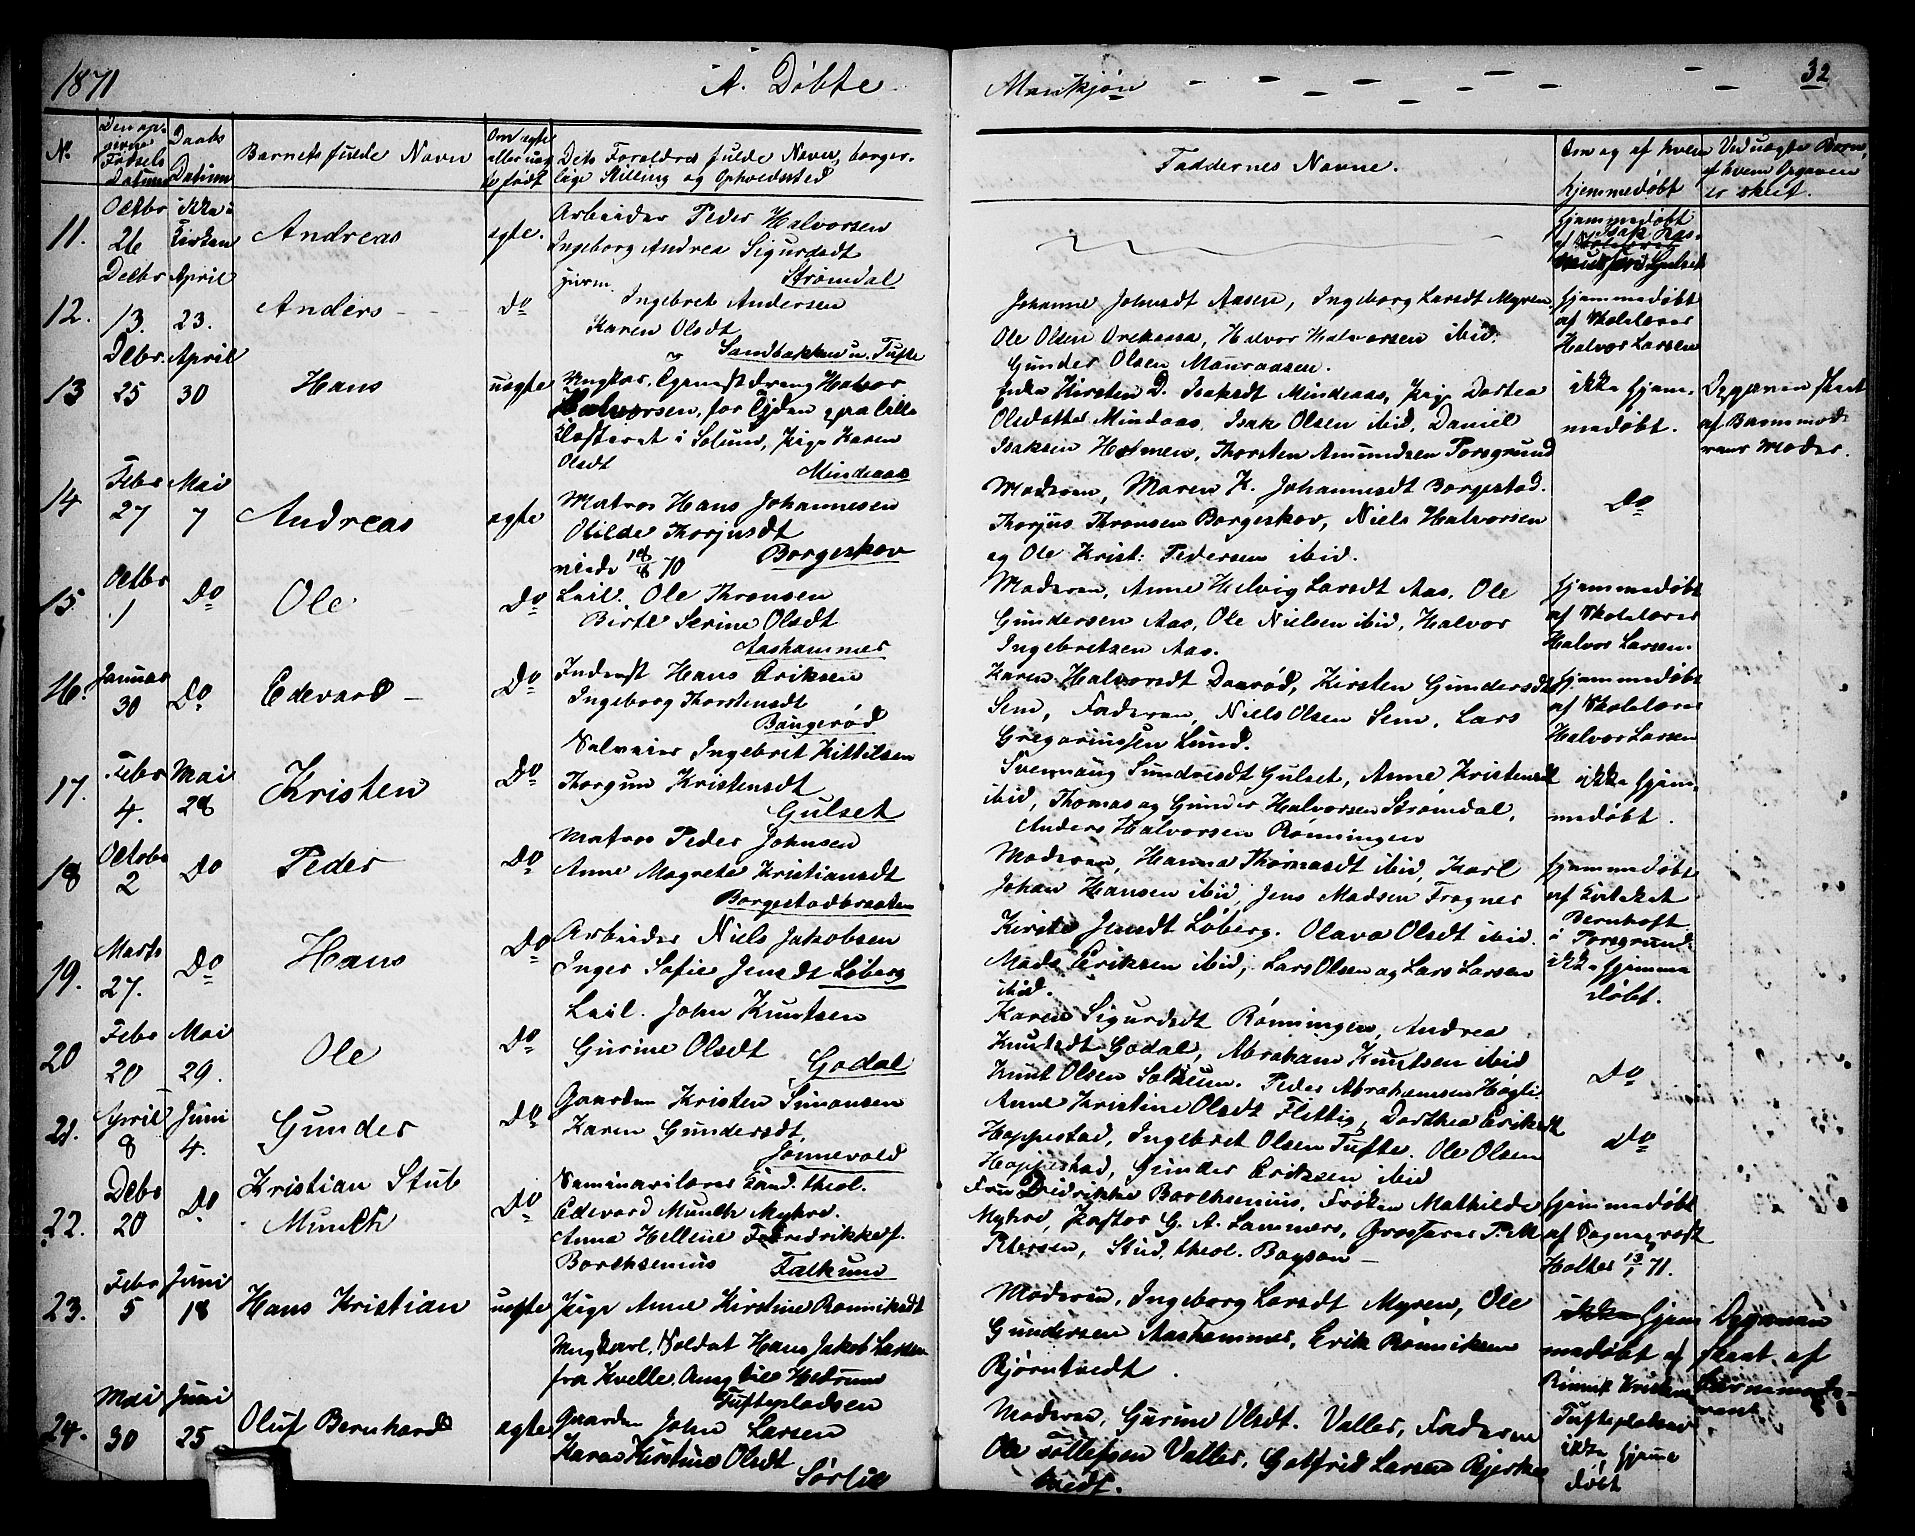 1871
A. Døbte
Mandkjøn
32
No.
Den opgivne Fødsels Datum
Daabs Datum
Barnets fulde Navn
Om ægte eller uægte født
Dets Forældres fulde Navn, borgerlige Stilling og Opholdssted
Faddernes Navne.
Om og af hvem hjemmedøbt
Ved uægte Børn, af hvem Opgaven er skeet.
11. Octbr 26 ikke i Kirken Andreas ægte.
Arbeider Peder Halvorsen
Ingeborg Andrea Sigurdsdt
Strømdal
hjemmedøbt
12. Decbr 13. April 23. Anders Do
Ingebret Andersen
Karen Olsdt
Sandbakken u. Tufte
Johanne Johnsdt Aasen, Ingeborg Larsdt Myren,
Ole Olsen, Halvor Halvorsen ibid.
Gunder Olsen
hjemmedøbt
af Skolelærer
Halvor Larsen
13 Debr. 25 April 30 Hans uægte
Ungkar. Tjenestdreng Halvor
Halvorsen, for Tiden paa lille
Klosteret i Solum, Pige Karen
Olsdt
Mindeaas
Enke Kirsten D. Isaksdt Mindeaas, Pige Dortea
Olsdatter Mindaas, Isak Olsen ibid, Daniel
Isaksen Holmen, Thorsten Amundsen Porsgrund
ikke hjemmedøbt.
Opgaven skeet
af Barnemoderens Moder.
14 Febr 27 Mai 7 Andreas ægte
Matros Hans Johannesen
Otilde Thorjusdt
viede 18/8 70 Borgeskov
Moderen, Maren K. Johannesdt Borgestad.
Thorjus Thronsen Borgeskov, Niels Halvorsen
og Ole Krist: Pedersen ibid.
Do
15. Octbr 1 Do Ole Do
Leil. Ole Thronsen
Berte Serine Olsdt
Aashammer
Moderen, Anne Helvig Larsdt Aas, Ole
Gundersen Aas, Ole Nielsen ibid, Halvor
Ingebretsen Aas.
hjemmedøbt
af Skolelærer
Halvor Larsen.
16. Januar 30 Do Edevard Do
Inderst Hans Eriksen
Ingeborg Thorstensdt
Bangerød
Karen Halvorsdt Danrød, Kirsten Gundersdt
Sem, Faderen, Niels Olsen Sem, Lars
Gregoriussen Lund.
hjemmedøbt
af Skolelærer
Halvor Larsen
17. Febr 4. Mai 28 Kristen Do
Selveier Ingebret Kittilsen
Thorgun Kristensdt
Gulset
Svennaug Sundresdt Gulset, Anne Kristensdt
ibid, Thomas og Gunder Halvorsen Strømdal,
Anders Halvorsen Rønningen
ikke hjemmedøbt.
18 October 2 Do Peder Do
Matros Peder Johnsen
Anne Magrete Kristiansdt
Borgestadbraaten
Moderen, Hanna Thomasdt ibid, Karl
Johan Hansen ibid, Jens Madsen Frogner
hjemmedøbt
af
Bernhoft
i Porsgrund.
19. Marts 27. Do Hans Do
Arbeider Niels Jakobsen
Inger Sofie Jensdt Løberg
Kirsten Jensdt Løberg. Olava Olsdt ibid.
Mads Eriksen ibid, Lars Olsen og Lars Larsen
ibid.
ikke hjemmedøbt.
20 Febr 20 Mai 29. Ole Do
Leil. John Knutsen
Gurine Olsdt
Godal
Karen Sigurdsdt Rønningen, Andrea
Knutsdt Godal, Abraham Knutsen ibid
Knut Olsen Solheim. Peder Abrahamsen Høgli
Do
21. April 8 Juni 4. Gunder Do
Gaardm Kristen Simonsen
Karen Gundersdt
Jønnevald
Anne Kristine Olsdt Flittig, Dorthea Eriksdt
Hoppestad, Ingebret Olsen Tufte. Ole Olsen
Hoppestad, Gunder Eriksen ibid
Do
22. Debr 20 Do Kristian Stub Munch Do
Seminarilærer Cand. theol.
Edevard Munch Myhre.
Anna Hellene Fredrikke f.
Borchsenius Falkum
Fru Didrikke Borchsenius, Frøken Mathilde
Myhre, Pastor G. A. Lammers, Grosserer P. M.
Petersen, Stud. theol. Bayson
hjemmedøbt
af Sogneprest
Holter 13/1 71.
23. Febr 5 Juni 18 Hans Kristian uægte
Pige Anne Kirstine Rønniksdt
Ungkarl, Soldat Hans Jakob Larsen
fra Kvelle, Hedrum
Tuftepladsen
Moderen, Ingeborg Larsdt Myren, Ole
Gundersen Aashammer, Erik Rønniksen
Bjørntvedt
ikke hjemmedøbt af
Rønnik Kristensen
Tuftepladsen
Opgaven
skeet af
Barnemoderen
24. Mai 30 Juni 25 Oluf Bernhard ægte
Gaardm John Larsen
Karen Kirstine Olsdt
Sørlie
Moderen, Gurine Olsdt. Valler, Faderen
Ole Tollefsen Valler, Gotfrid Larsen Bjerketvedt.
ikke hjemmedøbt